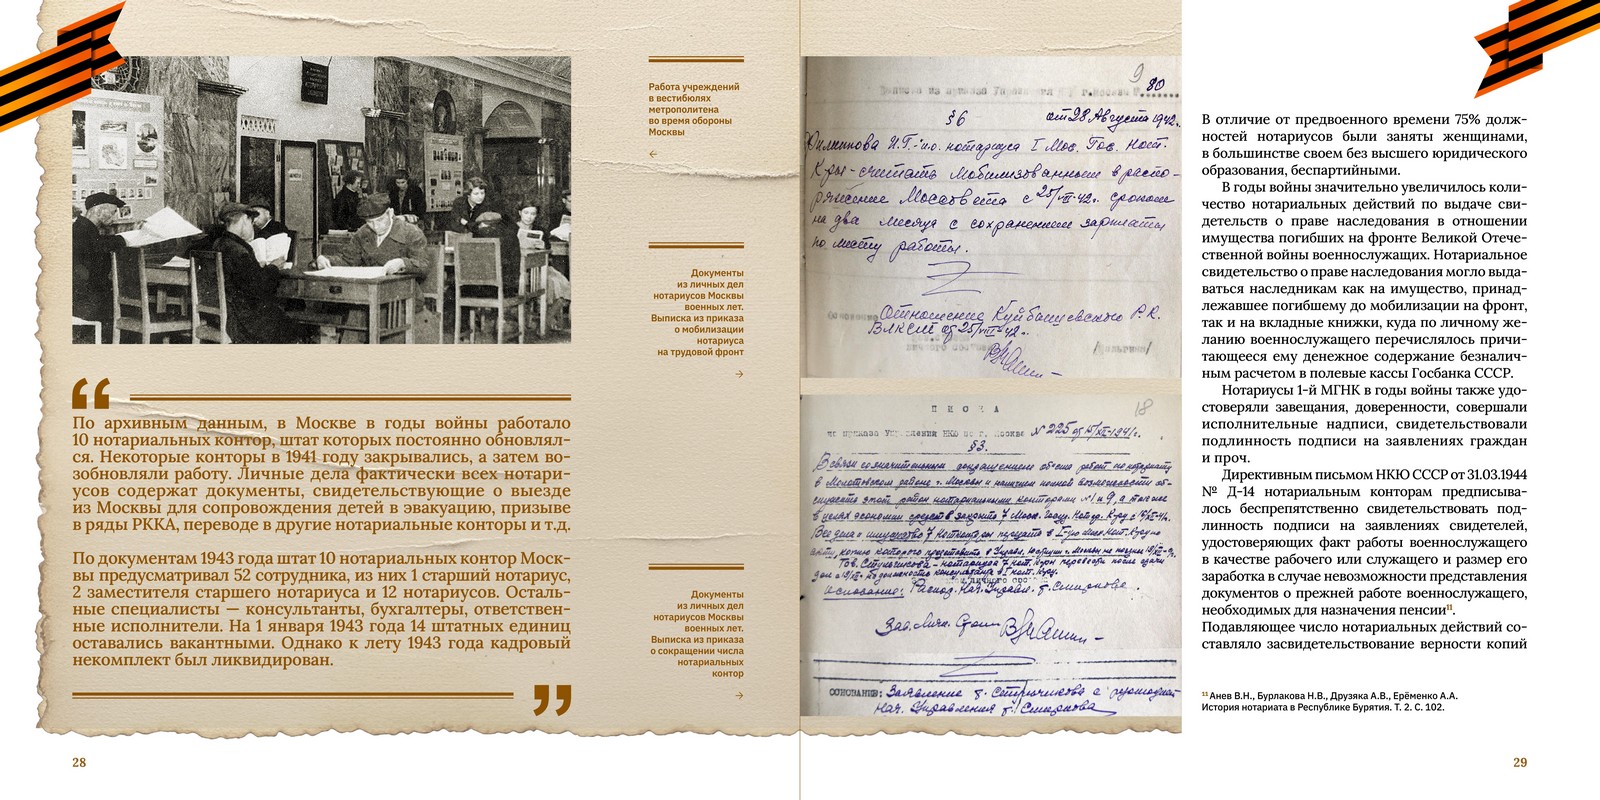 Работа учреждений
в вестибюлях
метрополитена
во время обороны
Москвы
←
Документы
из личных дел
нотариусов Москвы
военных лет.
Выписка из приказа
о мобилизации
нотариуса
на трудовой фронт
→
“
По архивным данным, в Москве в годы войны работало
10 нотариальных контор, штат которых постоянно обновлял-
ся. Некоторые конторы в 1941 году закрывались, а затем во-
зобновляли работу. Личные дела фактически всех нотари-
усов содержат документы, свидетельствующие о выезде
из Москвы для сопровождения детей в эвакуацию, призыве
в ряды РККА, переводе в другие нотариальные конторы и т.д.
По документам 1943 года штат 10 нотариальных контор Моск-
вы предусматривал 52 сотрудника, из них 1 старший нотариус,
2 заместителя старшего нотариуса и 12 нотариусов. Осталь-
ные специалисты — консультанты, бухгалтеры, ответствен-
ные исполнители. На 1 января 1943 года 14 штатных единиц
оставались вакантными. Однако к лету 1943 года кадровый
некомплект был ликвидирован.
”
Документы
из личных дел
нотариусов Москвы
военных лет.
Выписка из приказа
о сокращении числа
нотариальных
контор
→
28
9
80
§6 от 28 Августа 1942г.
И.Г. - и.о. нотариуса I Мос. Гос. Нот.
К-ры - считать мобилизованным в распо-
ряжение Моссовета с 25/VIII-42г. сроком
на два месяца с сохранением зарплаты
по месту работы.
Отношение Куйбышевского Р.К.
ВЛКСМ от 25/VIII-42г.
18
П И С К А
№ 225 от 15/XII-1941г.
§3.
В связи со значительным сокращением объема работ по нотариату
в Молотовском районе г. Москвы и наличием полной возможности об-
этот район нотариальными конторами №1 и 9, а также
в целях экономии средств закрыть 7 Моск. Госуд. Нотар. К-ру с
Все дела и имущество 7 нотконторы передать в
акту, копию которого представить в Управл. Юстиции г. Москвы не позднее
Тов. - нотариуса 7 нот. К-ры перевести после сдачи
дел на должность консультанта в I нот. К-ру.
Основание: Распор. Нач. Управл. т. Смирнова.
ОСНОВАНИЕ: Заявление т. с резолюцией
Нач. Управления т. Смирнова
В отличие от предвоенного времени 75% долж-
ностей нотариусов были заняты женщинами,
в большинстве своем без высшего юридического
образования, беспартийными.
В годы войны значительно увеличилось коли-
чество нотариальных действий по выдаче сви-
детельств о праве наследования в отношении
имущества погибших на фронте Великой Отече-
ственной войны военнослужащих. Нотариальное
свидетельство о праве наследования могло выда-
ваться наследникам как на имущество, принад-
лежавшее погибшему до мобилизации на фронт,
так и на вкладные книжки, куда по личному же-
ланию военнослужащего перечислялось причи-
тающееся ему денежное содержание безналич-
ным расчетом в полевые кассы Госбанка СССР.
Нотариусы 1-й МГНК в годы войны также удо-
стоверяли завещания, доверенности, совершали
исполнительные надписи, свидетельствовали
подлинность подписи на заявлениях граждан
и проч.
Директивным письмом НКЮ СССР от 31.03.1944
№ Д-14 нотариальным конторам предписыва-
лось беспрепятственно свидетельствовать под-
линность подписи на заявлениях свидетелей,
удостоверяющих факт работы военнослужащего
в качестве рабочего или служащего и размер его
заработка в случае невозможности представления
документов о прежней работе военнослужащего,
необходимых для назначения пенсии¹¹.
Подавляющее число нотариальных действий со-
ставляло засвидетельствование верности копий
¹¹ Анев В.Н., Бурлакова Н.В., Друзяка А.В., Ерёменко А.А.
История нотариата в Республике Бурятия. Т. 2. С. 102.
29